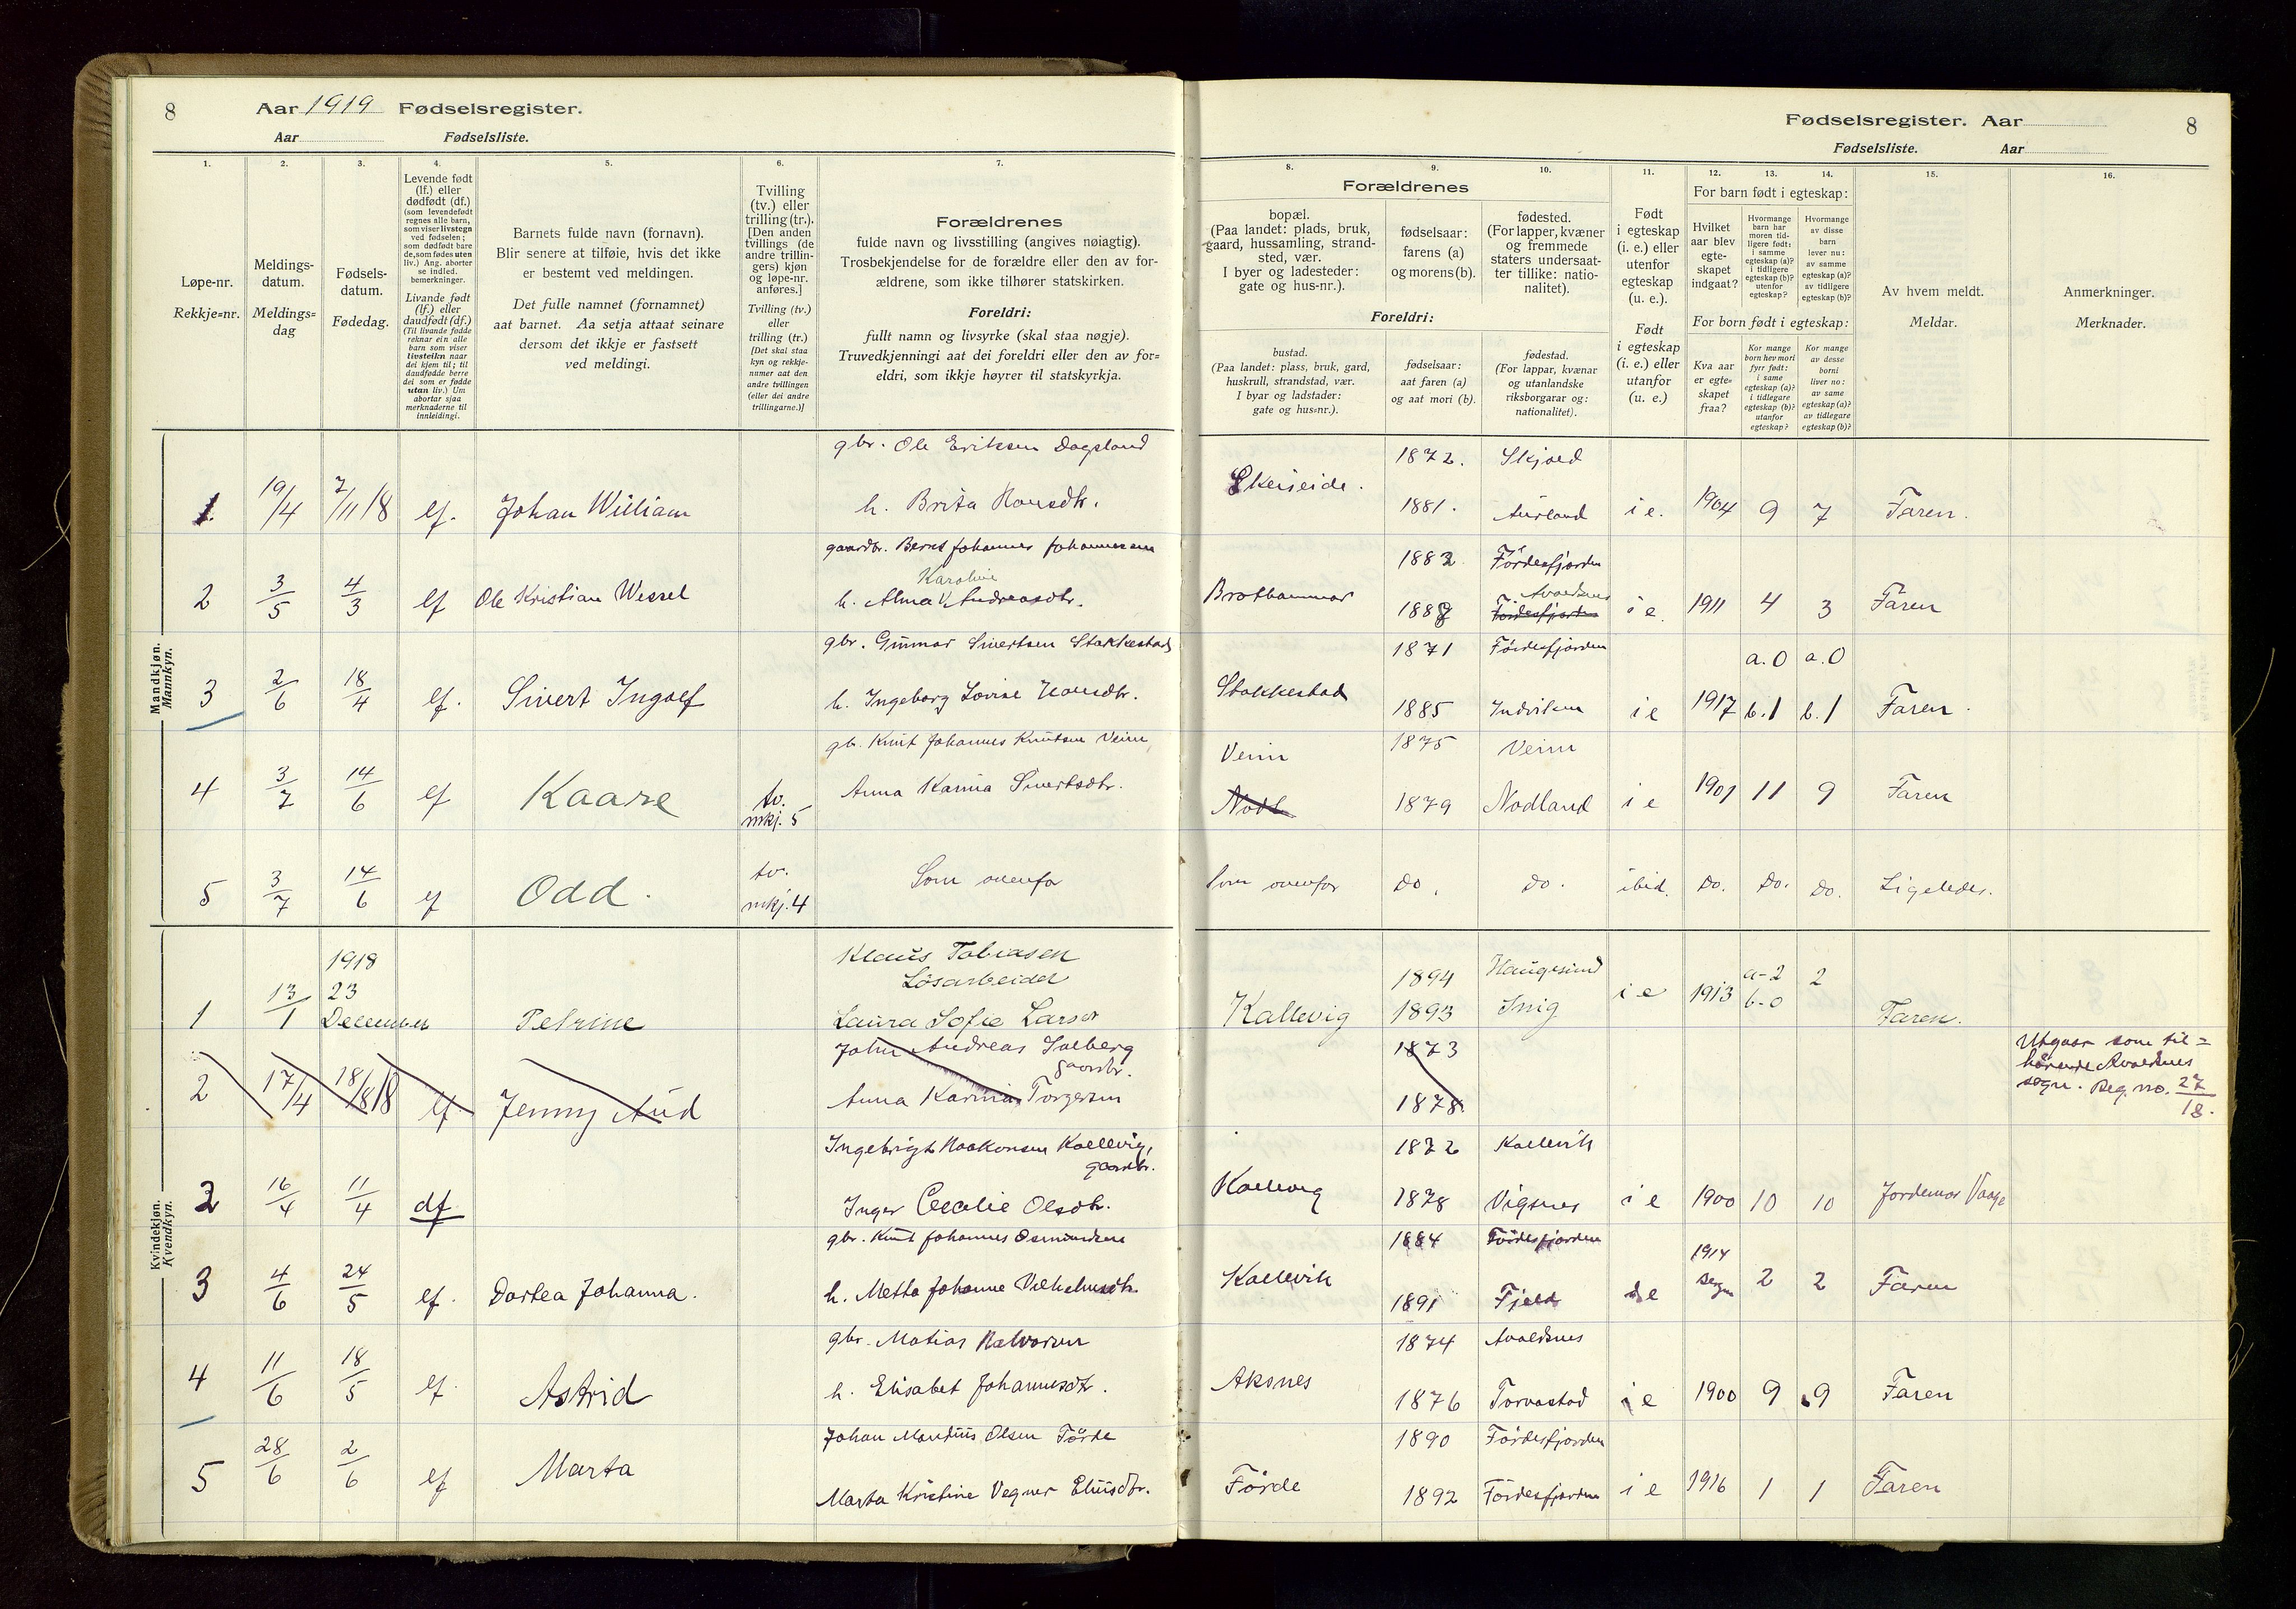 8 Aar 1919 Fødselsregister.
Aar Fødselsliste.
Fødselsregister. Aar 8
Fødselsliste. Aar
1.
Løpe-nr.
Rekkje=nr.
2.
Meldings-
datum.
Meldings=
dag
3.
Fødsels-
datum.
Fødedag.
4.
Levende født
(lf.) eller
dødfødt (df.)
(som levendefødt
regnes alle barn,
som viser livstegn
ved fødselen;
som dødfødt bare
de, som fødes uten
liv.) Ang. aborter
se indled.
bemerkninger.
Livande født
(lf.) eller
daudfødt (df.)
(Til livande fødde
reknar ein alle
born som viser
livsteikn naar
dei kjem til; til
daudfødde berre
dei som er fødde
utan liv.) Um
abortar sjaa
merknaderne til
innleidingi.
5.
Barnets fulde navn (fornavn).
Blir senere at tilføie, hvis det ikke
er bestemt ved meldingen.
Det fulle namnet (fornamnet)
aat barnet. Aa setja attaat seinare
dersom det ikkje er fastsett
ved meldingi.
6.
Tvilling
(tv.) eller
trilling (tr.).
[Den anden
tvillings (de
andre trillin-
gers) kjøn
og løpe-nr.
anføres.]
Tvilling (tv.)
eller
trilling (tr.)
[Det skal staa
kyn og rekkje-
numer aat den
andre tvillingen
(eller dei andre
trillingarne.)]
7.
Forældrenes
fulde navn og livsstilling (angives nøiagtig).
Trosbekjendelse for de forældre eller den av for-
ældrene, som ikke tilhører statskirken.
Foreldri:
fullt namn og livsyrke (skal staa nøgje).
Truvedkjenningi aat dei foreldri eller den av for=
eldri, som ikkje høyrer til statskyrkja.
8.
Forældrenes
bopæl.
(Paa landet: plads, bruk,
gaard, hussamling, strand-
sted, vær.
I byer og ladesteder:
gate og hus-nr.).
Foreldri:
bustad.
(Paa landet: plass, bruk, gard,
huskrull, strandstad, vær.
I byar og ladstader:
gate og hus=nr.).
9.
fødselsaar:
farens (a)
og morens (b).
fødselsaar:
aat faren (a)
og aat mori (b).
10.
fødested.
(For lapper, kvæner
og fremmede
staters undersaat-
ter tillike: natio-
nalitet).
fødestad.
(For lappar, kvænar
og utanlandske
riksborgarar og:
nationalitet).
11.
Født
i egteskap
(i. e.) eller
utenfor
egteskap
(u. e.).
Født
i egteskap
(i. e.) eller
utanfor
(u. e.)
For barn født i egteskap:
12.
Hvilket
aar blev
egte-
skapet
indgaat?
13.
Hvormange
barn har
moren tid-
ligere født:
i samme
egteskap (a)?
i tidligere
egteskap (b)?
utenfor
egteskap?
14.
Hvormange
av disse
barn
lever nu:
av samme
egteskap (a)?
av tidligere
egteskap (b)?
For born født i egteskap:
Kva aar
er egte=
skapet
fraa?
Kor mange
born hev mori
fyrr født:
i same
egteskap (a)?
i tidlegare
egteskap (b)?
utanfor
egteskap?
Kor mange
av desse
borni
liver no:
av same
egteskap (a)?
av tidlegare
egteskap (b)?
15.
Av hvem meldt.
Meldar.
16.
Anmerkninger.
Merknader.
Mandkjøn.
Mannkyn.
gbr. Ole Eriksen Dagsland 1872. Skjold
1. 19/4 7/11 18 lf. Johan William h. Brita Hansdtr. Skeiseide. 1881. Aurland i e. 1904 9 7 Faren.
gaardbr. Bernt Johannes Johannessen 1882 Førdesfjorden
Karoline Avaldsnes
2 3/5 4/3 lf Ole Kristian Wessel h. Alma Andreasdtr. Bratthammar 1888 Førdesfjorden i e. 1911 4 3 Faren
gbr. Gunnar Sivertsen Stakkestad 1871 Førdesfjorden a. 0 a. 0
3 2/6 18/4 lf. Sivert Ingolf h. Ingeborg Lovise Hansdtr. Stakkestad 1885 Indviken i e 1917 b. 1 b. 1 Faren.
gb. Knut Johannes Knutsen Veim Veim 1875 Veim
4 3/7 14/6 lf Kaare tv. mkj. 5 Anna Karina Sivertsdtr. Nodl 1879 Nodland i e 1901 11 9 Faren
5 3/7 14/6 lf Odd. tv. mkj. 4 Som ovenfo Som ovenfor do. do. ibid. do. do. do. Ligeledes.
Kvindekjøn.
Kvendkyn.
1918 Klaus Tobiasen
Løsarbeider 1894 Haugesund a-2 2
1 13/1 23 December Petrine Laura Sofie Larsen Kallevig 1893 Snig i e 1913 b-0 Faren.
John Andreas Solberg gaardbr. 1873
2 17/4 18/8 18 lf. Jenny Aud Anna Karina Torgersen 1878.
Utgaar som til=
hørende Avaldsnes
sogn. Reg. no. 27/18.
Ingebrigt Haakonsen Kallevig, gaardbr. 1872 Kallevik
2 16/4 11/4 df Inger Cecelie Olsdtr. Kallevig 1878 Vigsnes i e 1900 10 10 Jordemor Vaage
gbr. Knut Johannes Osmundsen 1884 Førdesfjorden 1914
3 4/6 24/5 lf. Dortea Johanna. h. Metta Johanne Vilhelmsdtr. Kallevik 1891 Fjeld i e 2 2 Faren
gbr. Matias Halvorsen 1874 Avaldsnes
4 11/6 18/5 lf. Astrid h. Elisabet Johannesdtr. Aksnes 1876 Torvastad i e 1900 9 9 Faren
Johan Mandius Olsen Førde 1890 Førdesfjorden
5 28/6 2/6 lf Marta Marta Kristine Vegner Eliusdtr. Førde 1892 Førdesfjorden i e 1916 1 1 Faren